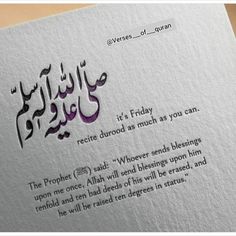 @Verses__of__quran
صلى الله عليه وآله وسلم
it's Friday
recite durood as much as you can.
The Prophet (ﷺ) said: "Whoever sends blessings
upon me once, Allah will send blessings upon him
tenfold and ten bad deeds of his will be erased, and
he will be raised ten degrees in status."